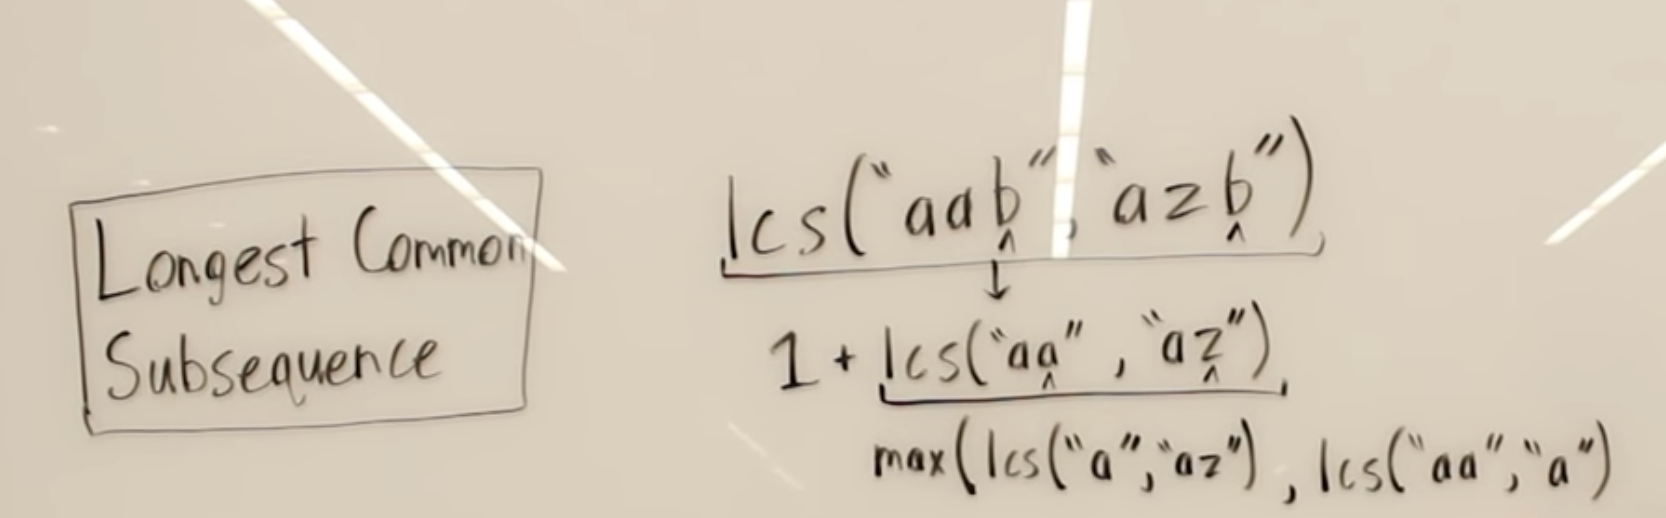 Longest Common
Subsequence
lcs("aab", "azb")
1 + lcs("aa", "az")
max(lcs("a", "az"), lcs("aa", "a")